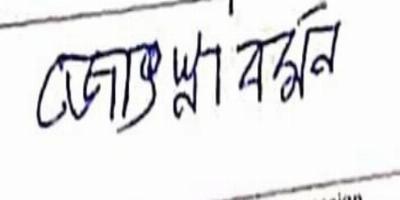 জোৎস্না বর্মন